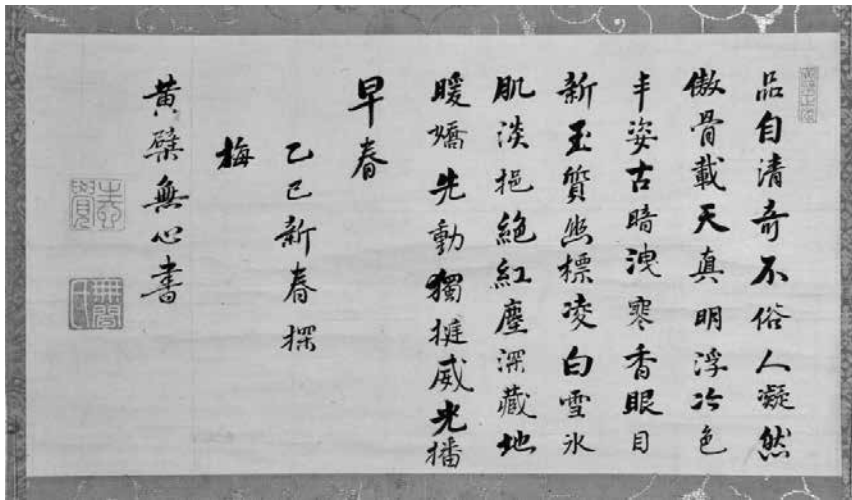 品自清奇不俗人凝然
傲骨載天真明浮冷色
丰姿古暗洩寒香眼目
新玉質幽標凌白雪氷
肌淡挹絶紅塵深藏地
暖嬌先動獨挺威光播
早春
乙巳新春探
梅
黄檗無心書